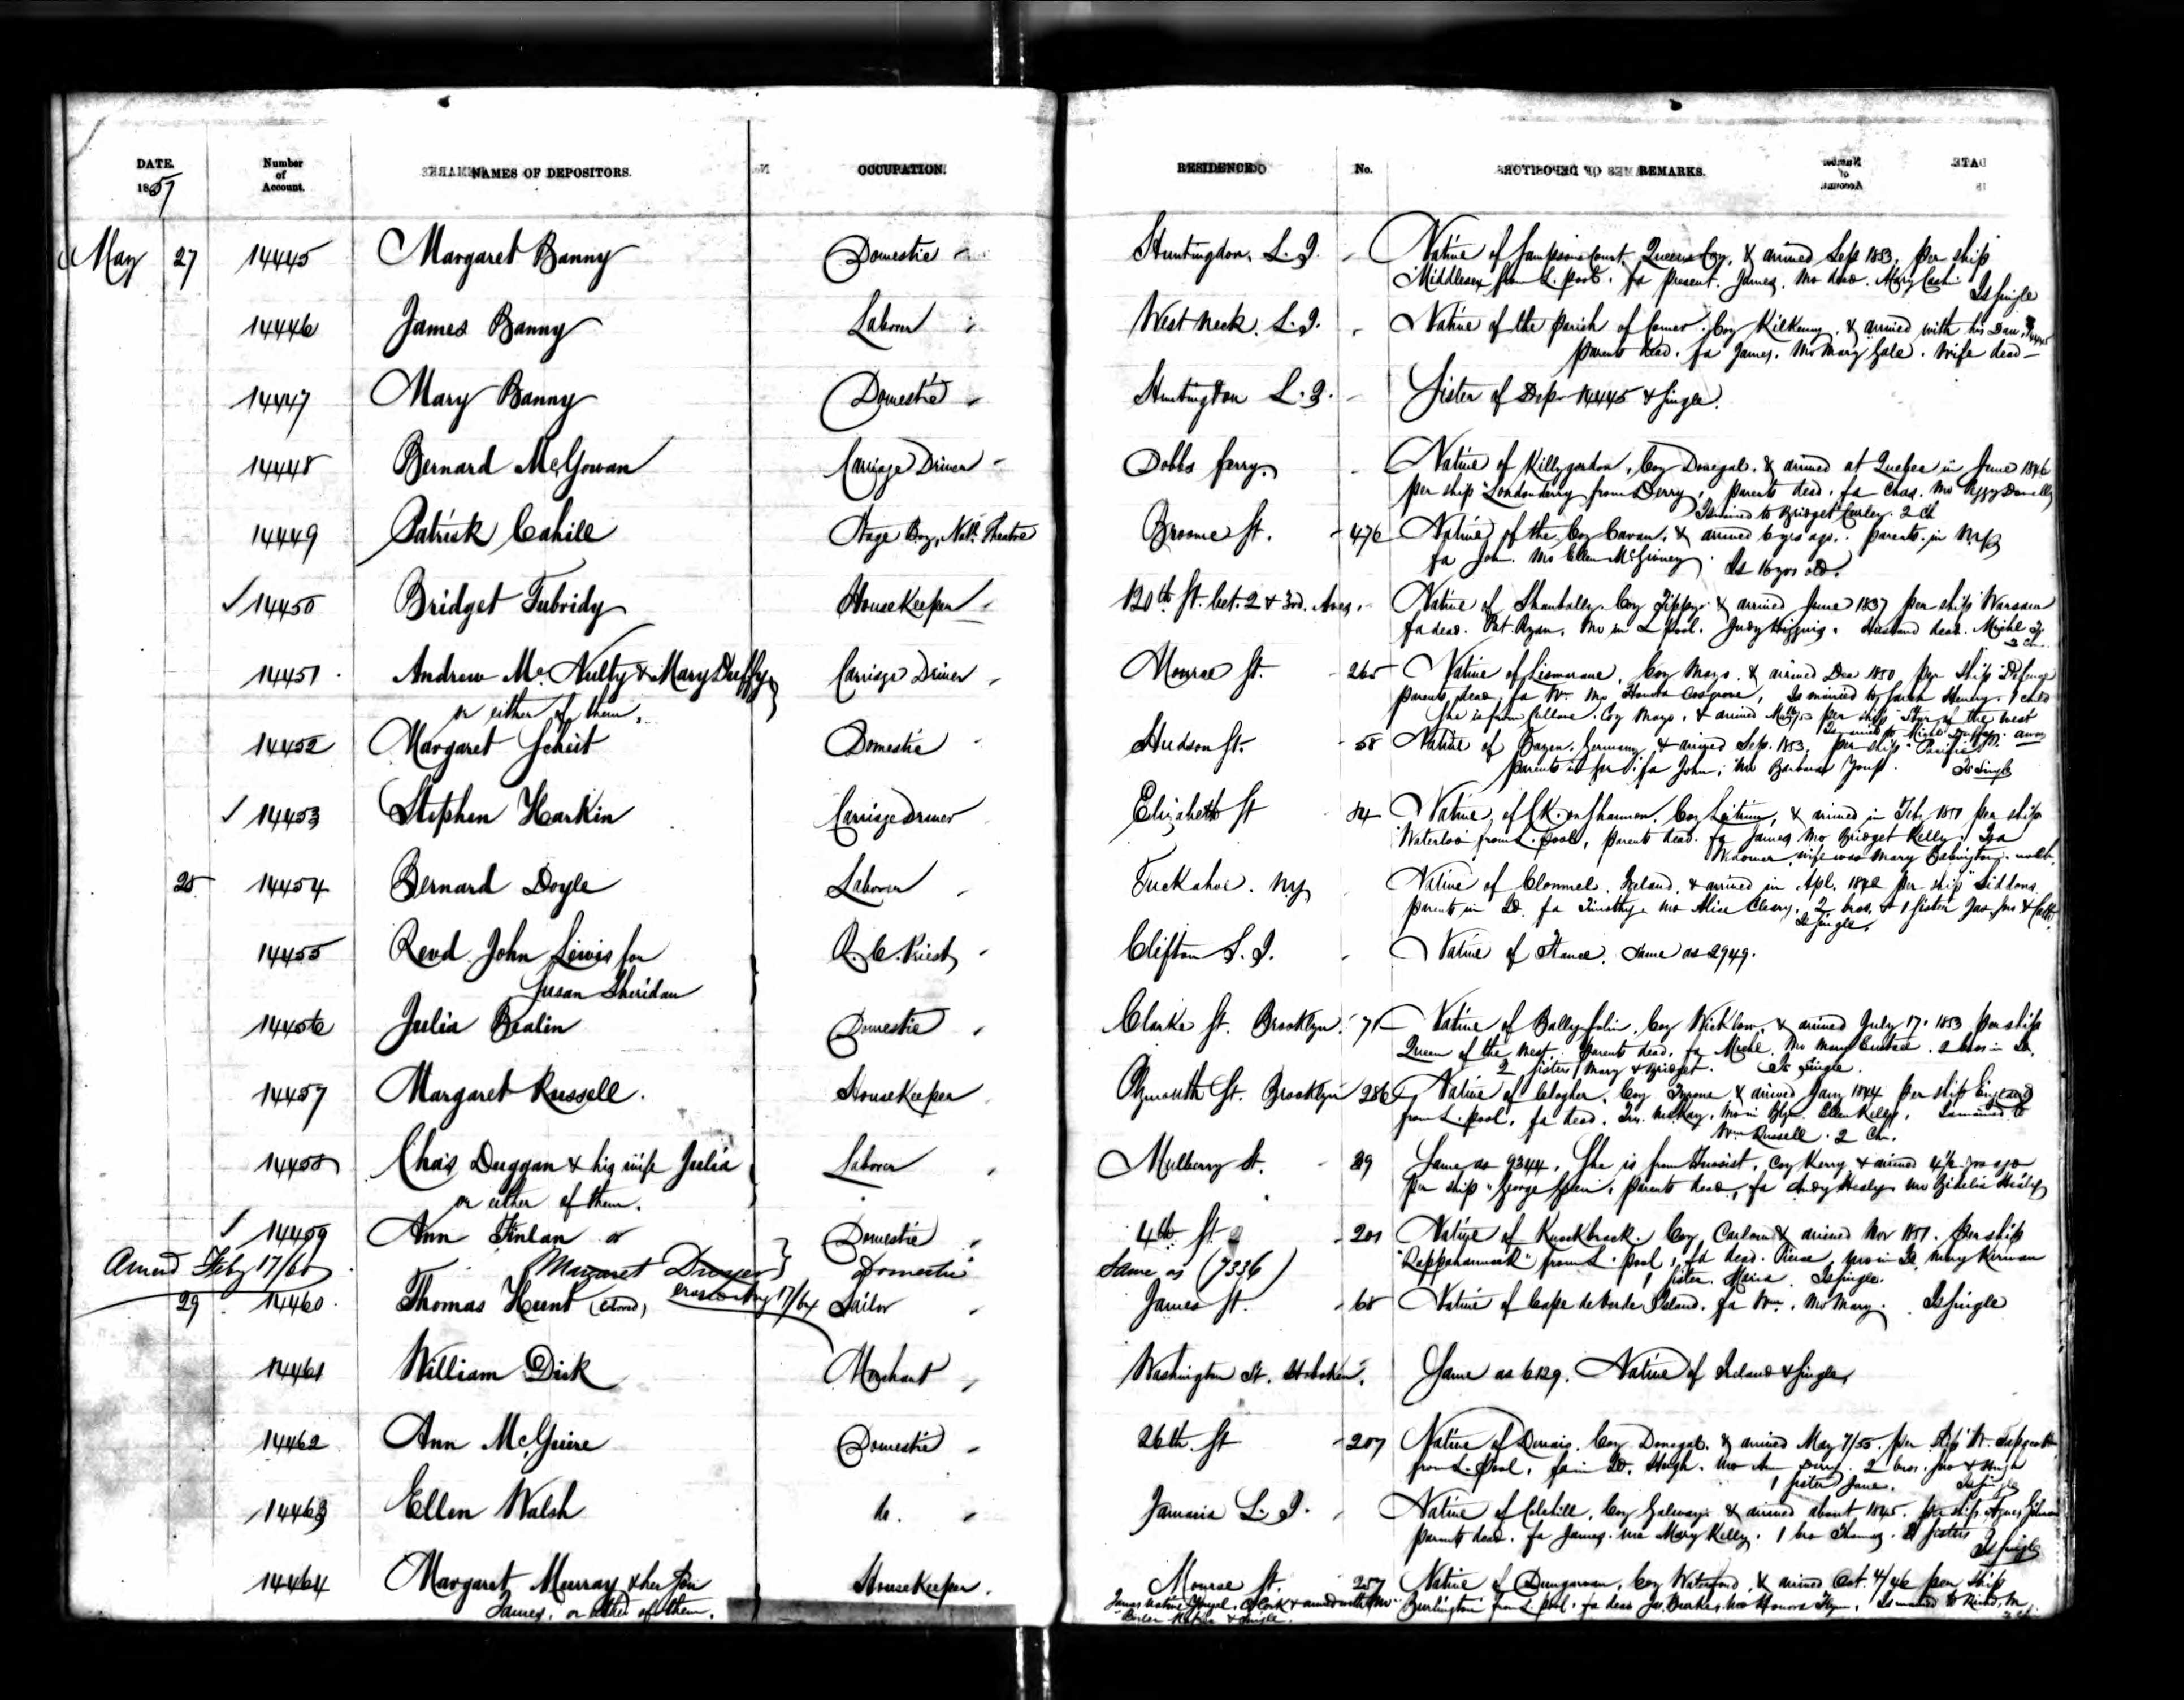 DATE. Number of Account. NAMES OF DEPOSITORS. OCCUPATION. RESIDENCE. No. REMARKS.
1857
May 27 14445 Margaret Banny Domestic Huntingdon. L. I. Native of Sampsons Court Queens Coy. & arrived Sep 1853. per ship
Middlesex from L. pool. fa present. James. Mo dead. Mary Cash. Is single
14446 James Banny Laborer West Neck. L. I. Native of the parish of Comer. Coy Kilkenny. & arrived with his Dau. 14445
parents dead. fa James. Mo Mary Gale. Wife dead
14447 Mary Banny Domestic Huntington L. I. Sister of Depr 14445 & single.
14448 Bernard McGowan Carriage Driver Dobbs ferry. Native of Killygordon, Coy Donegal. & arrived at Quebec in June 1846
per ship "Londonderry from Derry, parents dead. fa Chas. Mo Peggy Donelly
Is married to Bridget Curley. 2 Ch
14449 Patrick Cahill Stage Boy, Natl. Theatre Broome St. 476 Native of the Coy Cavan. & arrived 6 yrs ago. parents in N.Y.
fa John. Mo Ellen McGinney. Is 16 yrs old.
✓ 14450 Bridget Tubridy HouseKeeper 120th St. bet. 2 & 3rd. Aves. Native of Shanbally. Coy Tippy. & arrived June 1837 per ship Warsaw
fa dead. Pat. Ryan, Mo in L pool. Judy Higgins. Husband dead. Michl T.
14451 Andrew McNulty & Mary Duffy Carriage Driver Monroe St. 265 Native of Lismorane, Coy Mayo. & arrived Dec 1850 per ship Defence
or either of them. parents dead, fa Wm Mo Honora Cosgrove, Is married to Sarah Henry. 1 child
She is from Cullane. Coy Mayo. & arrived per ship Star of the West
14452 Margaret Scheit Domestic Hudson St. 58 Native of Germany & arrived Sep. 1853. per ship "Pacific"
parents in fa John; Mo Barbara Is Single
✓ 14453 Stephen Harkin Carriage Driver Elizabeth St 84 Native of CK. on Shannon. Coy Leitrim, & arrived in Feb. 1851 per ship
Waterloo from L. pool, parents dead. fa James Mo Bridget Kelly. Is a
Widower. wife was Mary
28 14454 Bernard Doyle Laborer Tuckahoe. N.Y. Native of Clonmel. Ireland. & arrived in Apl. 1842 per ship Siddons
parents in Id. fa Timothy Mo Alice Cleary. 2 bros. & 1 sister
Is single.
14455 Revd. John Lewis for R. C. Priest Clifton S. I. Native of France. Same as 2949.
Susan Sheridan
14456 Julia Bealin Domestic Clarke St. Brooklyn. 71 Native of Coy Wicklow. & arrived July 17. 1853 per ship
Queen of the West. Parents dead. fa Michl. Mo Mary Eustace. 2 bros in Id.
2 sisters Mary & Bridget. Is Single.
14457 Margaret Russell. HouseKeeper Plymouth St. Brooklyn 286 Native of Clogher. Coy Tyrone & arrived Jany 1844 per ship England
from L. pool. fa dead. McKay. Mo in Bkn. Ellen Kelly. Is married to
Wm Russell. 2 Chn.
14458 Chas Duggan & his wife Julia Laborer Mulberry St. 89 Same as 9344. She is from Tuosist, Coy Kerry & arrived 4½ yrs ago
or either of them. per ship "George Green, parents dead, fa Andy Healy Mo Bidelia Healy
✓ 14459 Ann Finlan or Domestic 4th St 201 Native of Knockbrack. Coy Carlow & arrived Nov 1851. per ship
Amend Feby 17/60 Margaret Dwyer Domestic Same as (7336) "Rappahannock" from L. pool, fa dead. Pierce Mo in Id. Mary Kirwan
1 sister. Maria. Is single.
29 14460 Thomas Hunt (Colored) Sailor James St. 68 Native of Cape de Verde Island. fa Wm. Mo Mary. Is single
14461 William Dick Merchant Washington St. Hoboken. Same as 6129. Native of Ireland & single
14462 Ann McGuire Domestic 26th. St 207 Native of Coy Donegal. & arrived May 7/55. per ship W. Tapscott
from L. Pool. fa in Id. Hugh. Mo Ann 2 bros. Jno & Hugh
1 sister Jane. Is single
14463 Ellen Walsh do. Jamaica L. I. Native of Colehill, Coy Galway & arrived about 1845. per ship Agnes
parents dead. fa James. Mo Mary Kelly. 1 bro Thomas. 2 sisters Is single
14464 Margaret Murray & her Son HouseKeeper. Monroe St. 257 Native of Dungarvan, Coy Waterford, & arrived Oct. 4/46 per ship
James, or either of them. Burlington from L. pool. fa dead Burke, Mo Honora Flynn.